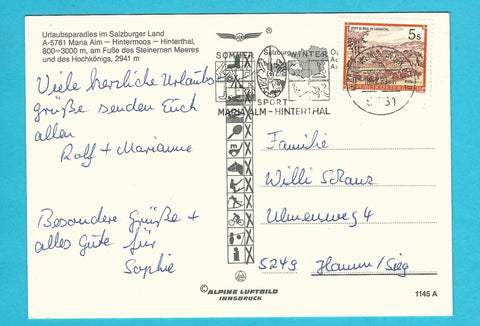 Urlaubsparadies im Salzburger Land
A-5761 Maria Alm – Hintermoos – Hinterthal,
800–3000 m, am Fuße des Steinernen Meeres
und des Hochkönigs, 2941 m
Viele herzliche Urlaubs
grüße senden Euch
allen
Rolf + Marianne
Besondere Grüße +
alles Gute für
Sophie
SOMMER
WINTER
Salzburg
SPORT
MARIA ALM – HINTERTHAL
5 S
5761
Familie
Willi Schanz
Ulmenweg 4
5249 Hamm/Sieg
© ALPINE LUFTBILD
INNSBRUCK
1145 A